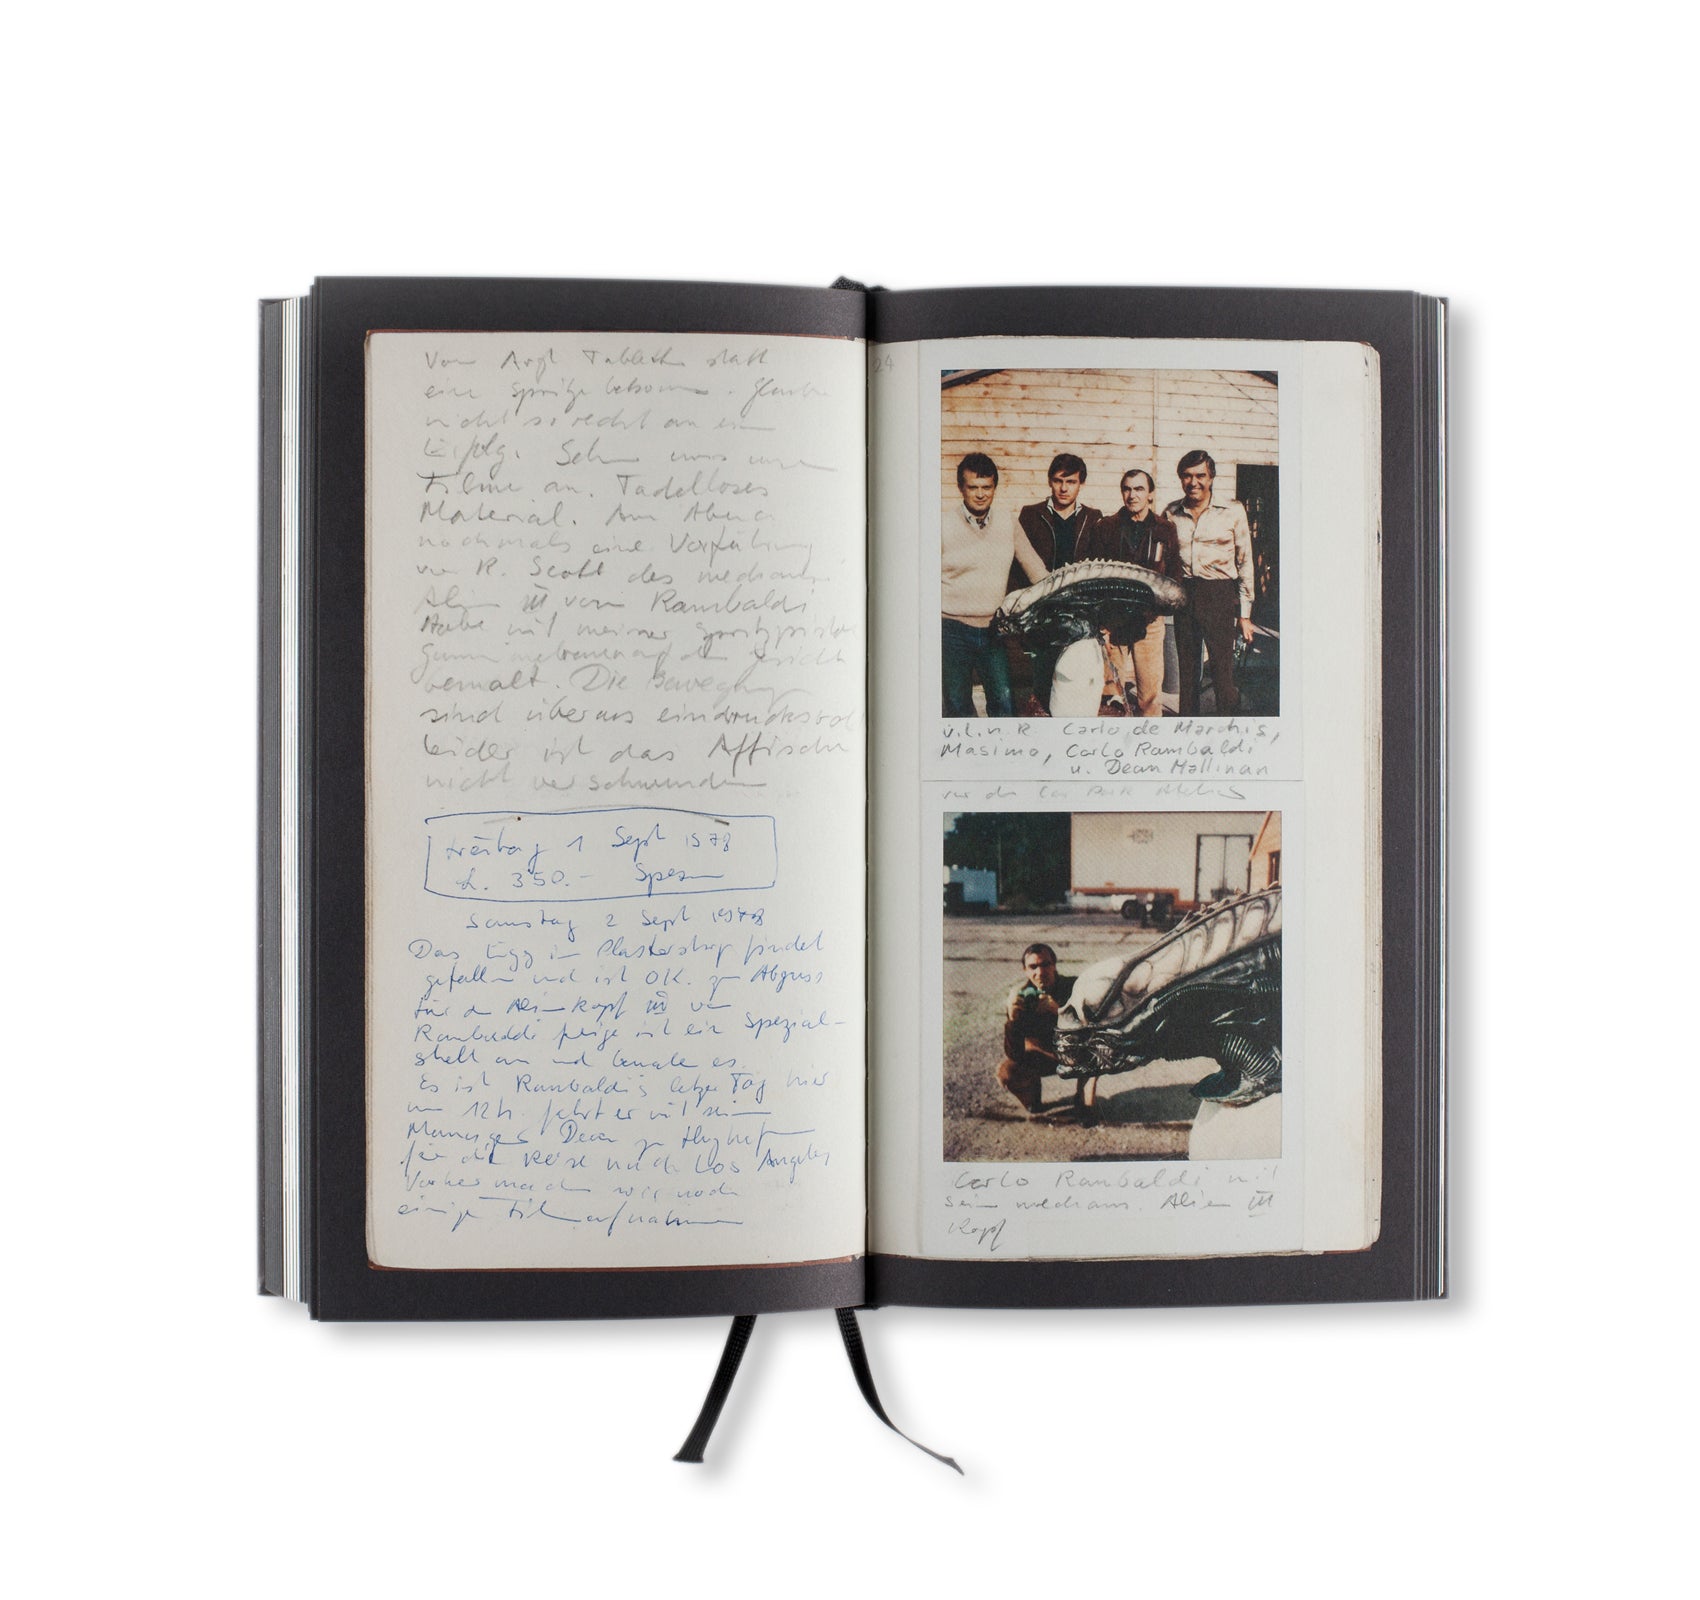 Vom Arzt Tabletten statt
eine Spritze bekommen. Glaube
nicht so recht an einen
Erfolg. Sehen uns unsere
Filme an. Tadelloses
Material. Am Abend
nochmals eine Vorführung
vor R. Scott des mechanischen
Alien III von Rambaldi
Habe mit meiner Spritzpistole
Gummi auf den Gesicht
bemalt. Die Bewegungen
sind überaus eindrucksvoll
leider ist das Affische
nicht verschwunden
Freitag 1 Sept 1978
L. 350.- Spesen
Samstag 2 Sept 1978
Das Egg im Plastershop findet
gefallen und ist OK. zum Abguss
für den Alienkopf III von
Rambaldi ein Spezial-
stell an und bemale es.
Es ist Rambaldis letzter Tag hier
um 12h. fährt er mit seinem
Manager Dean zum Flughafen
für die Reise nach Los Angeles
Vorher machen wir noch
einige Filmaufnahmen
24
v.l.n.R. Carlo de Marchis,
Masimo, Carlo Rambaldi
u. Dean Mallinan
vor dem Car Park Atelier
Carlo Rambaldi mit
seinem mechans. Alien III
Kopf